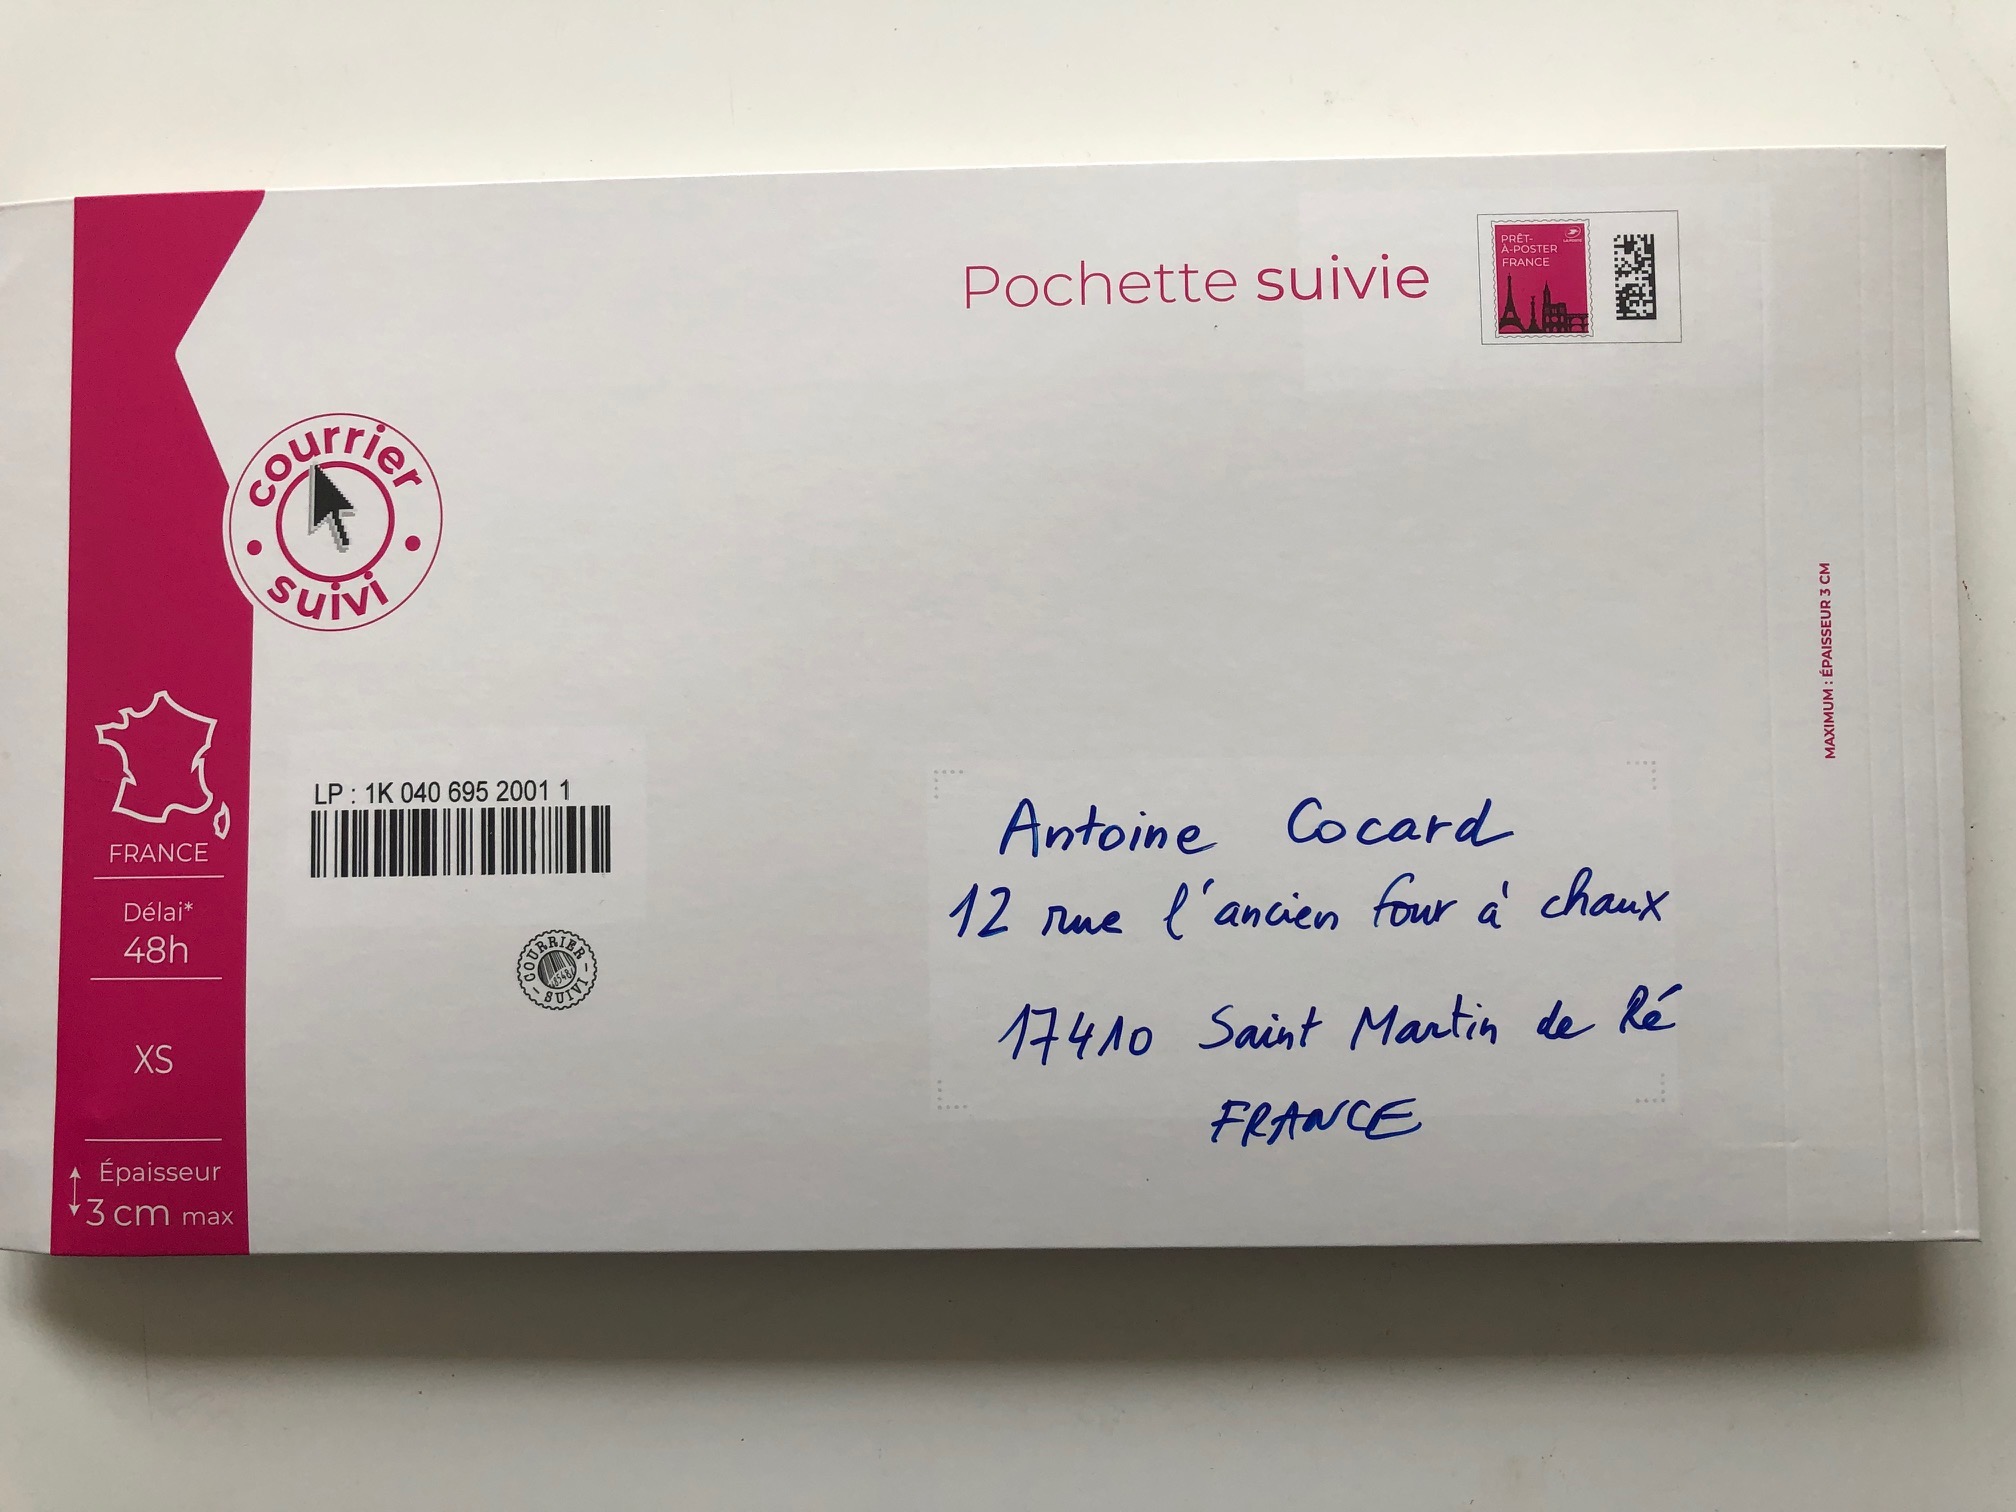 Pochette suivie
PRÊT-
À-POSTER
FRANCE
LA POSTE
courrier
suivi
MAXIMUM : ÉPAISSEUR 3 CM
FRANCE
Délai*
48h
XS
Épaisseur
3 cm max
LP : 1K 040 695 2001 1
COURRIER
SUIVI
Antoine Cocard
12 rue l'ancien four à chaux
17410 Saint Martin de Ré
FRANCE